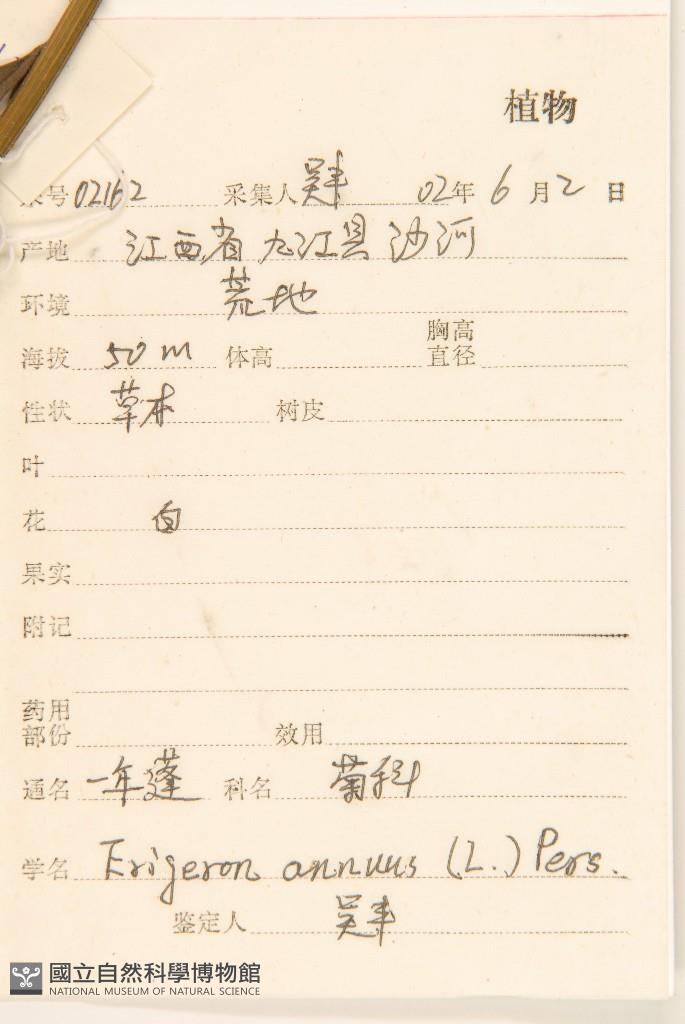 植物
号 02162 采集人 吴丰 02年 6月2日
产地 江西省九江县沙河
环境 荒地
海拔 50m 体高 胸高直径
性状 草本 树皮
叶
花 白
果实
附记
药用部份 效用
通名 一年蓬 科名 菊科
学名 Erigeron annuus (L.) Pers.
鉴定人 吴丰
國立自然科學博物館
NATIONAL MUSEUM OF NATURAL SCIENCE